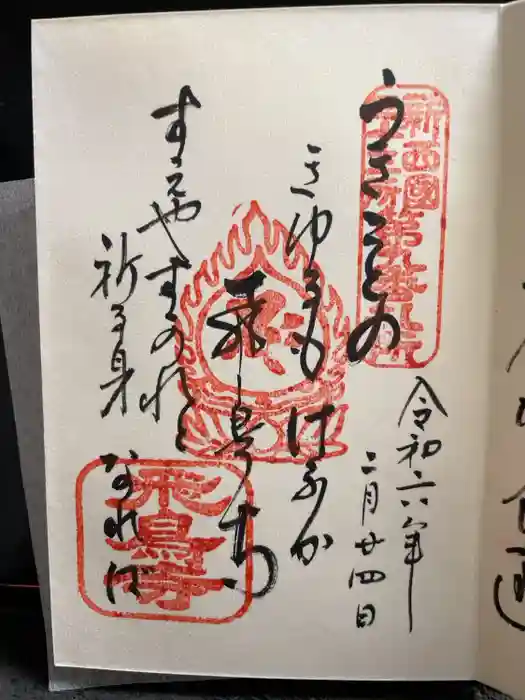 新西國
第九番札所
うきことの
きゆるもけふか
飛鳥寺
すゑやすかれと
祈る身
なれば
令和六年
二月廿四日
飛鳥寺